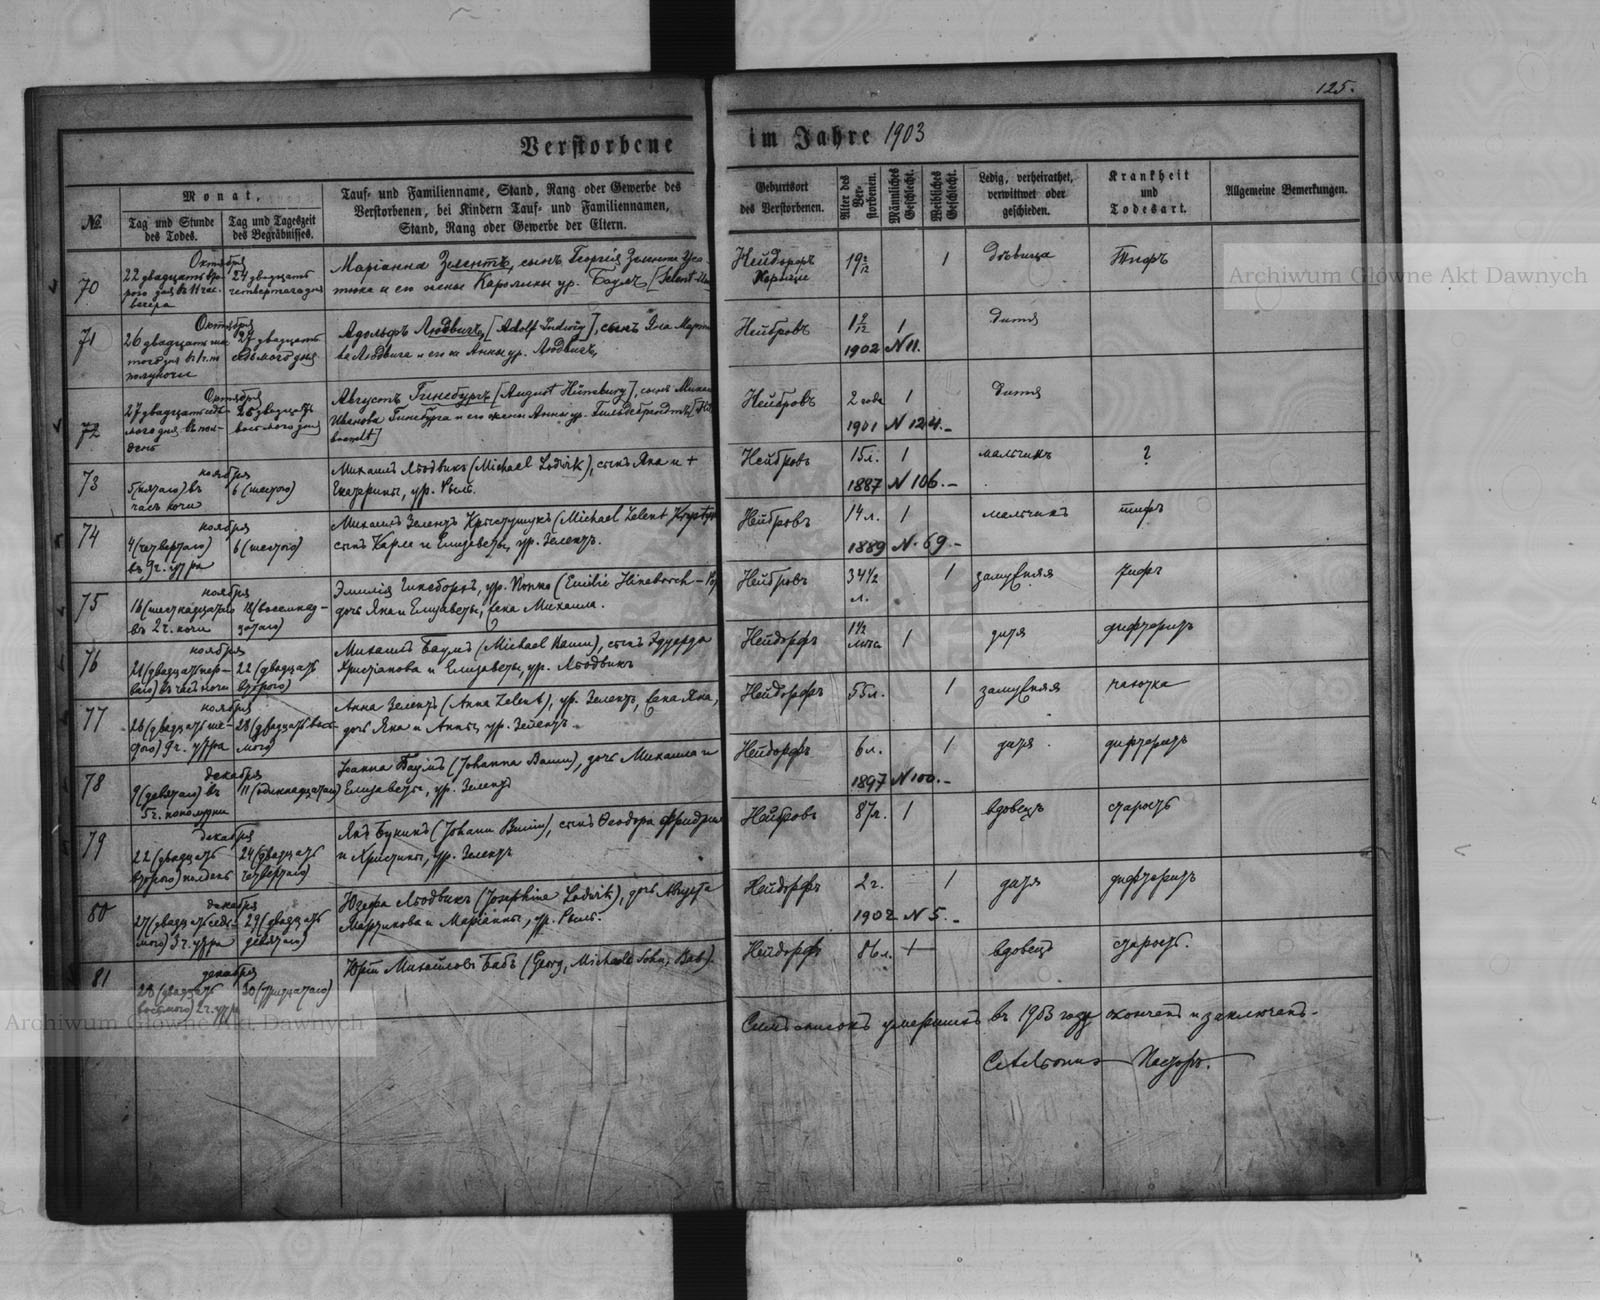 125.
Verstorbene im Jahre 1903
№
Monat,
Tag und Stunde des Todes.
Tag und Tageszeit des Begräbnisses.
Tauf- und Familienname, Stand, Rang oder Gewerbe des
Verstorbenen, bei Kindern Tauf- und Familiennamen,
Stand, Rang oder Gewerbe der Eltern.
Geburtsort
des Verstorbenen.
Alter des Ver-
storbenen.
Männliches
Geschlecht.
Weibliches
Geschlecht.
Ledig, verheirathet,
verwittwet oder
geschieden.
Krankheit
und
Todesart.
Allgemeine Bemerkungen.
70
Октября
22 двадцать вто-
рого дня въ 11 час.
вечера
24 двадцать
четвертаго дня
Маріанна Зелентъ, сынъ Георгія
и его жены Каролины ур.
Нейдорфъ
19 2/12
1
Дѣвица
Тифъ
71
Октября
26 двадцать ше-
стого дня
полуночи
27 двадцать
седьмого дня
Адольфъ Людвигъ, [Adolf Ludwig], сынъ Яна
Людвига и его ж Анны ур. Людвигъ,
Нейбровъ
1 9/12
1
1902 N 11.
Дитя
72
Октября
27 двадцать седь-
мого дня въ пол-
день
28 двадцать
восьмого дня
Августъ Гинсбургъ [August Hünsburg], сынъ
Иванова Гинсбурга и его жены Анны ур. Гильдебрандтъ
Нейбровъ
2 года
1
1901 N 124.-
Дитя
73
ноября
5 (пятаго) въ
часъ ночи
6 (шестого)
Михаилъ Людвикъ (Michael Ludwik), сынъ Яна и +
Екатерины, ур. Рыль.
Нейбровъ
15 л.
1
1887 N 106.-
мальчикъ
?
74
ноября
4 (четвертаго)
въ 9 ч. утра
6 (шестого)
Михаилъ Зелентъ (Michael Zelent
сынъ Карла и Елизаветы, ур. Зелентъ.
Нейбровъ
14 л.
1
1889 N. 69.-
мальчикъ
тифъ
75
ноября
16 (шестнадцатаго
въ 2 ч. ночи
18 (восемнад-
цатаго)
Эмилія Гинсборгъ, ур. Поппо (Emilie Hineborch -
дочь Яна и Елизаветы, жена Михаила.
Нейбровъ
34 1/2
л.
1
замужняя
тифъ
76
ноября
21 (двадцать пер-
ваго) въ часъ ночи
22 (двадцать
второго)
Михаилъ Баумъ (Michael Baum), сынъ Эдуарда
Христіанова и Елизаветы, ур. Людвикъ
Нейдорфъ
1 1/2
мѣса
1
дитя
дифтеритъ
77
ноября
26 (двадцать ше-
стого) 9 ч. утра
28 (двадцать вось-
мого)
Анна Зелентъ (Anna Zelent), ур. Зелентъ, жена Яна,
дочь Яна и Анны, ур. Зелентъ.
Нейдорфъ
55 л.
1
замужняя
чахотка
78
декабря
9 (девятаго) въ
5 ч. пополудни
11 (одиннадцатаго)
Іоанна Баумъ (Johanna Baum), дочь Михаила и
Елизаветы, ур. Зелентъ
Нейдорфъ
6 л.
1
1897 N 100.-
дитя
дифтеритъ
79
декабря
22 (двадцать
второго) полдень
24 (двадцать
четвертаго)
Янъ Бунинъ (Johann Bunin), сынъ Ѳеодора
и Христины, ур. Зелентъ
Нейбровъ
87 л.
1
вдовецъ
старость
80
декабря
27 (двадцать седь-
мого) 3 ч. утра
29 (двадцать
девятаго)
Юзефа Людвикъ (Josephine Ludwik), дочь Августа
Мартинова и Маріанны, ур. Рыль.
Нейдорфъ
2 г.
1
1902 N 5.-
дитя
дифтеритъ
81
декабря
28 (двадцать
восьмого) 2 ч. утра
30 (тридцатаго)
Юрій Михайловъ Бабъ (Georg, Michaels Sohn, Bab).
Нейдорфъ
86 л.
1
вдовецъ
старость.
Симъ списокъ умершихъ въ 1903 году оконченъ и заключенъ.
Пасторъ.
Archiwum Główne Akt Dawnych
Archiwum Główne Akt Dawnych